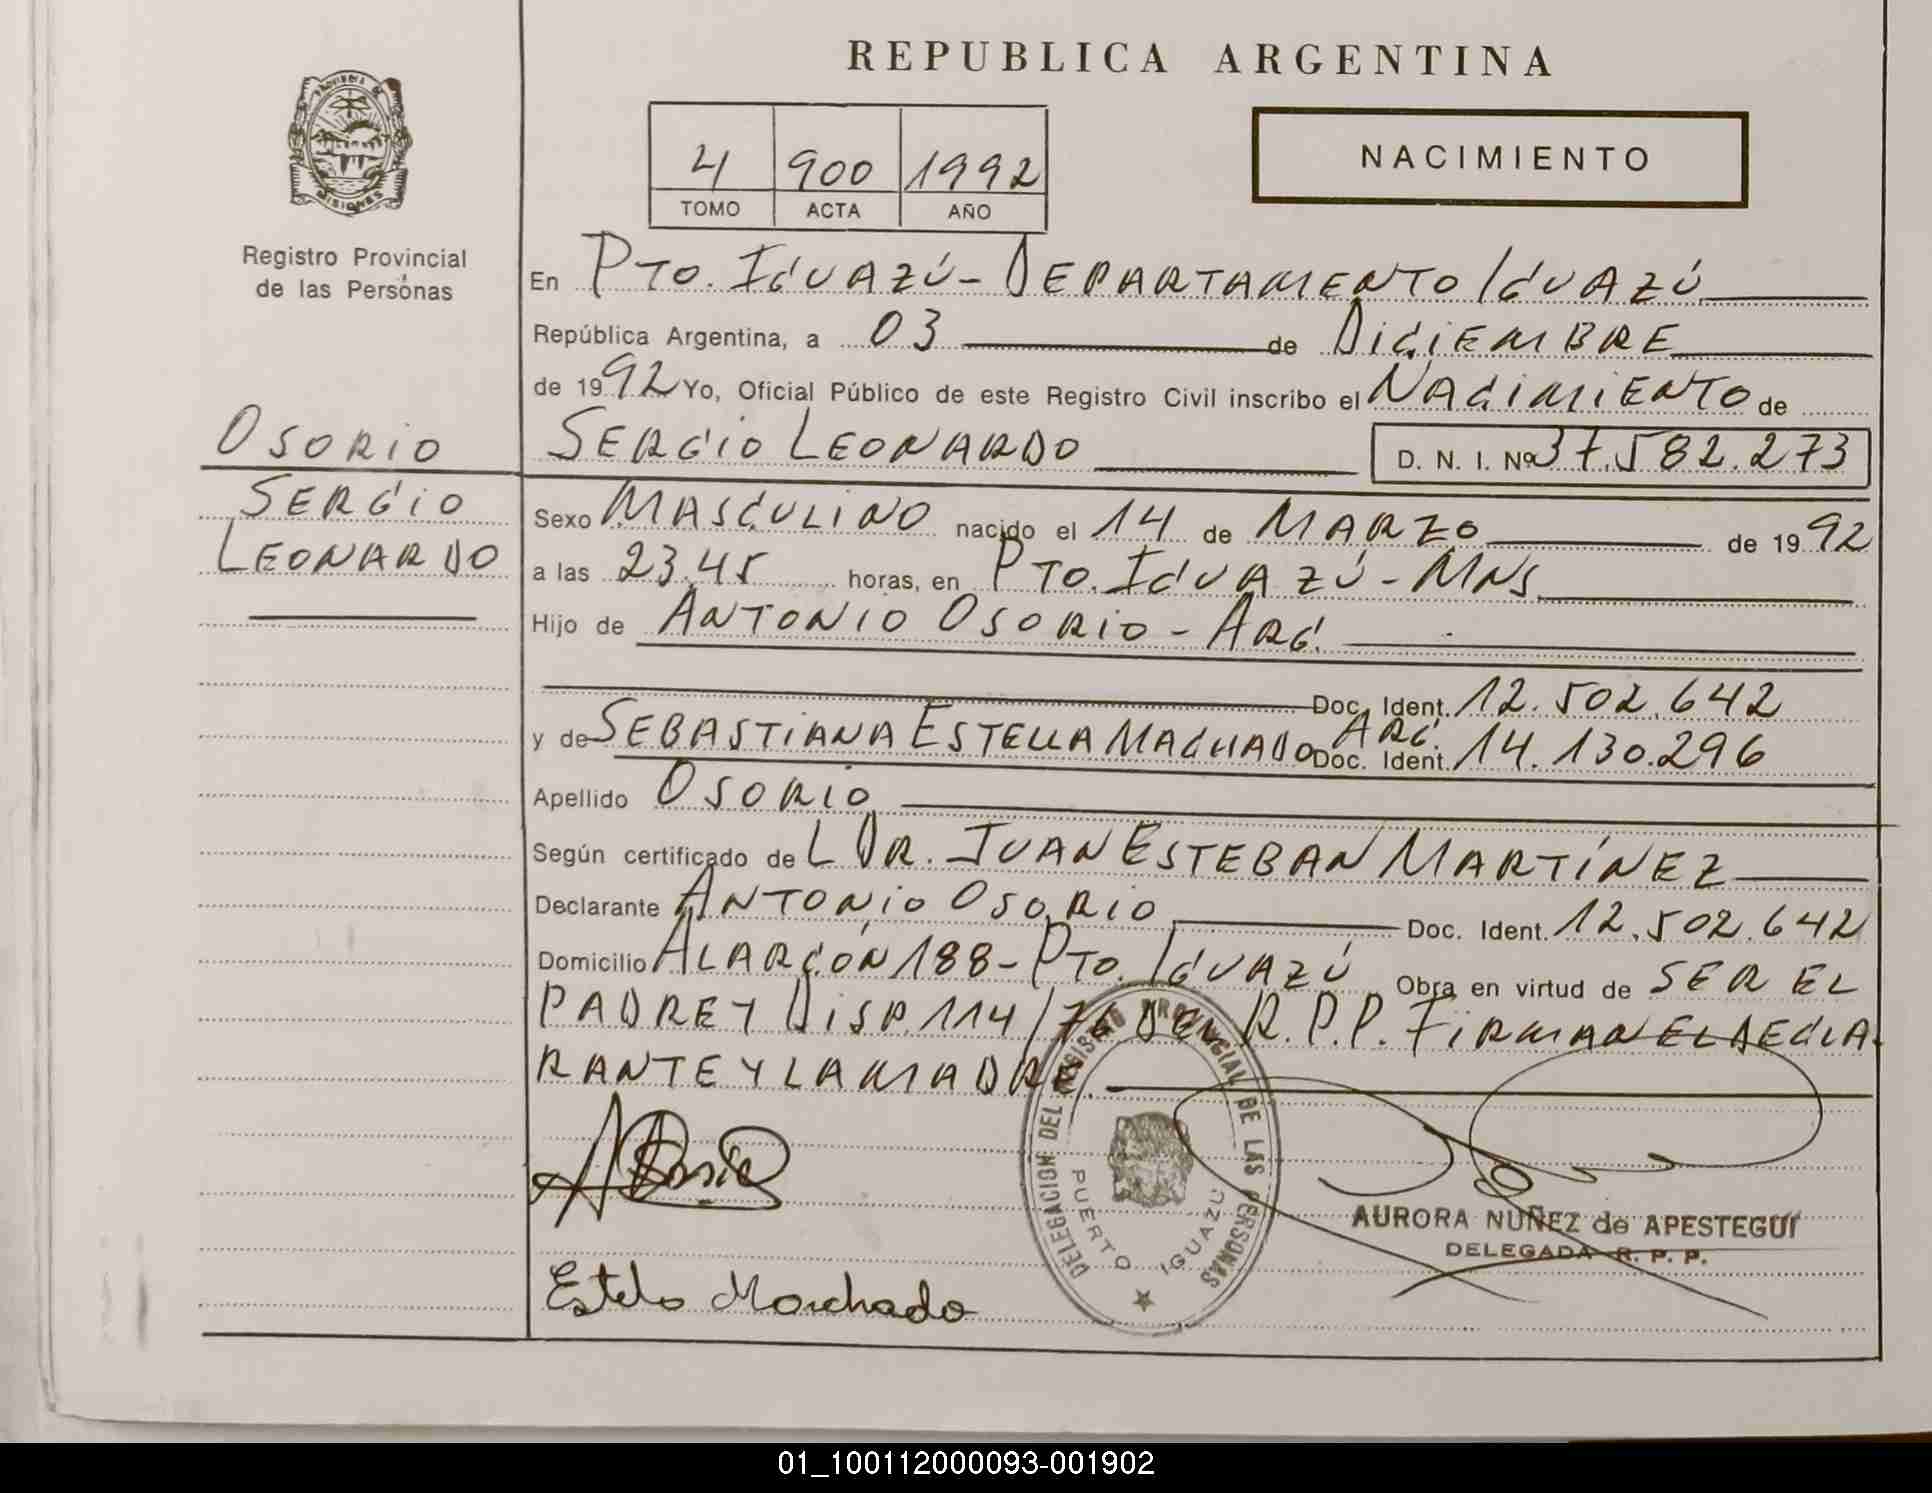 REPUBLICA ARGENTINA
PROVINCIA DE
MISIONES
4 900 1992
TOMO ACTA AÑO
NACIMIENTO
Registro Provincial
de las Personas
En PTO. IGUAZÚ - DEPARTAMENTO IGUAZÚ
República Argentina, a 03 de DICIEMBRE
de 1992 Yo, Oficial Público de este Registro Civil inscribo el NACIMIENTO de
SERGIO LEONARDO D. N. I. Nº 37.582.273
OSORIO
SERGIO
LEONARDO
Sexo MASCULINO nacido el 14 de MARZO de 1992
a las 23.45 horas, en PTO. IGUAZÚ - MNS.
Hijo de ANTONIO OSORIO - ARG.
Doc. Ident. 12.502.642
y de SEBASTIANA ESTELLA MACHADO ARG. Doc. Ident. 14.130.296
Apellido OSORIO
Según certificado de L DR. JUAN ESTEBAN MARTÍNEZ
Declarante ANTONIO OSORIO Doc. Ident. 12.502.642
Domicilio ALARCÓN 188 - PTO. IGUAZÚ Obra en virtud de SER EL
PADRE Y DISP. 114/76 DEL R.P.P. FIRMAN EL DECLA-
RANTE Y LA MADRE.
DELEGACION DEL REGISTRO PROVINCIAL DE LAS PERSONAS
PUERTO IGUAZU
AURORA NUÑEZ de APESTEGUI
DELEGADA R. P. P.
Estela Machado
01_100112000093-001902